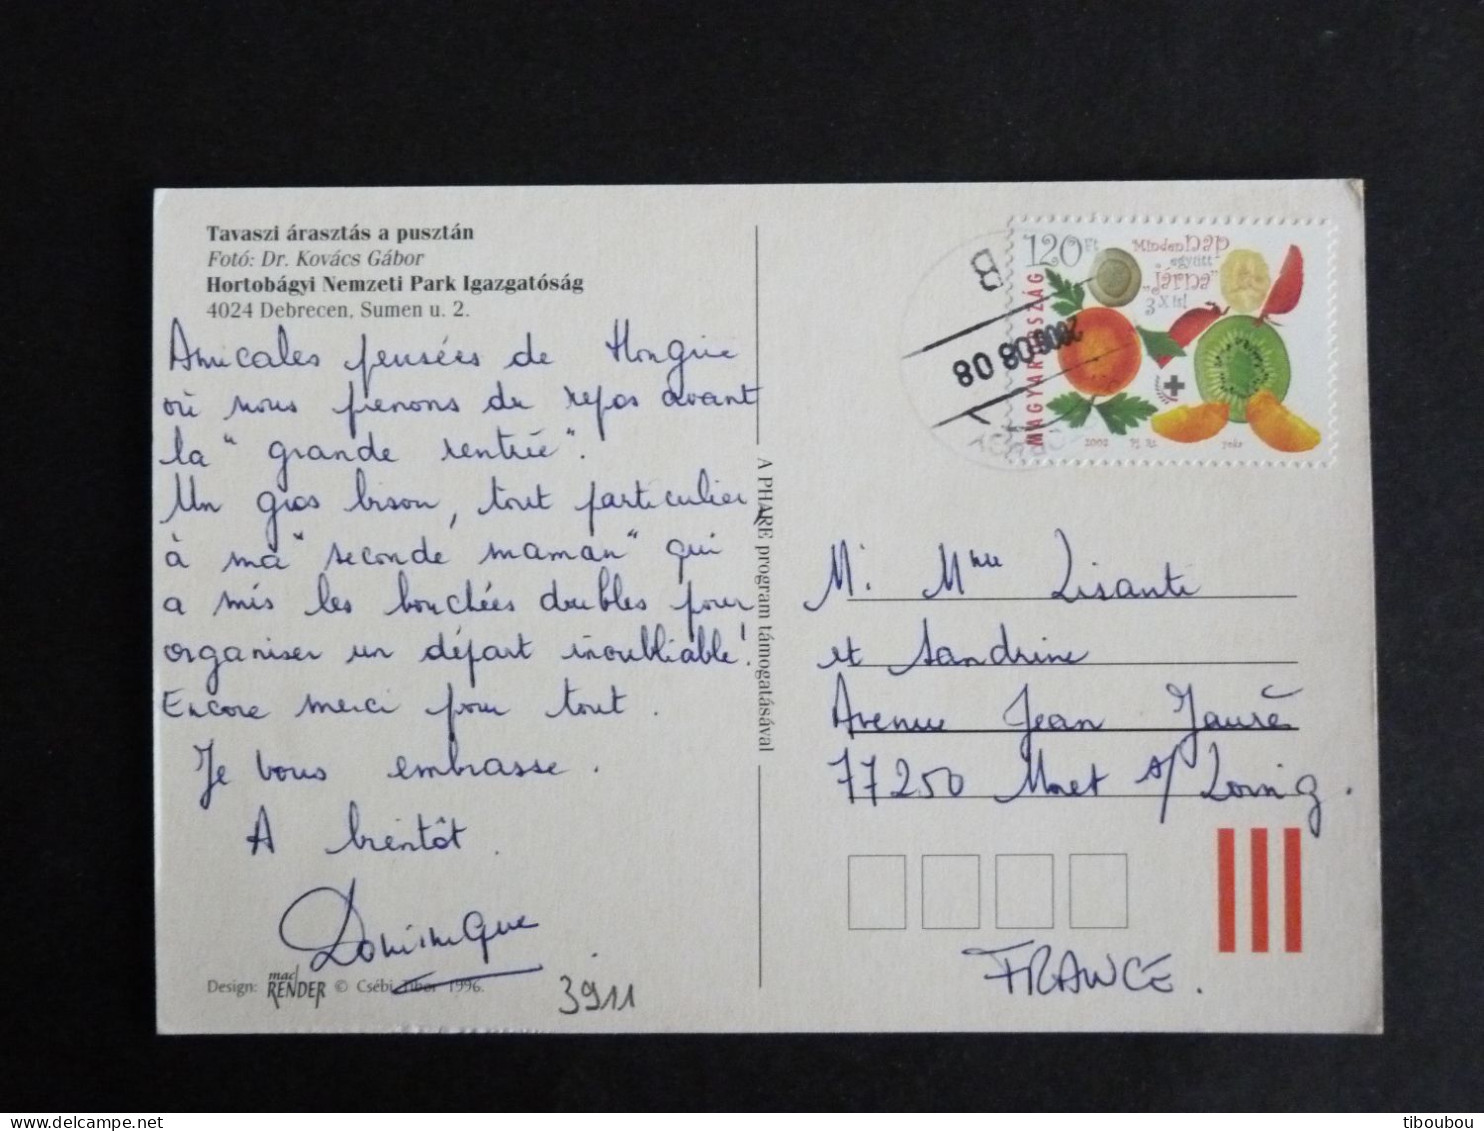 Tavaszi árasztás a pusztán
Fotó: Dr. Kovács Gábor
Hortobágyi Nemzeti Park Igazgatóság
4024 Debrecen, Sumen u. 2.
Amicales pensées de Hongrie
où nous prenons du repos avant
la "grande rentrée".
Un gros bison, tout particulier
à ma "seconde maman" qui
a mis les bouchées doubles pour
organiser un départ inoubliable!
Encore merci pour tout.
Je vous embrasse.
A bientôt.
Dominique
Design: mac RENDER © Csébi Tibor 1996.
3911
A PHARE program támogatásával
120 Ft
Minden nap
együtt
"járna"
3 X is!
MAGYARORSZÁG
2008
B
08 08
M. Mme Lisanti
et Sandrine
Avenue Jean Jaurès
77250 Moret s/ Loing.
FRANCE.
tiboubou